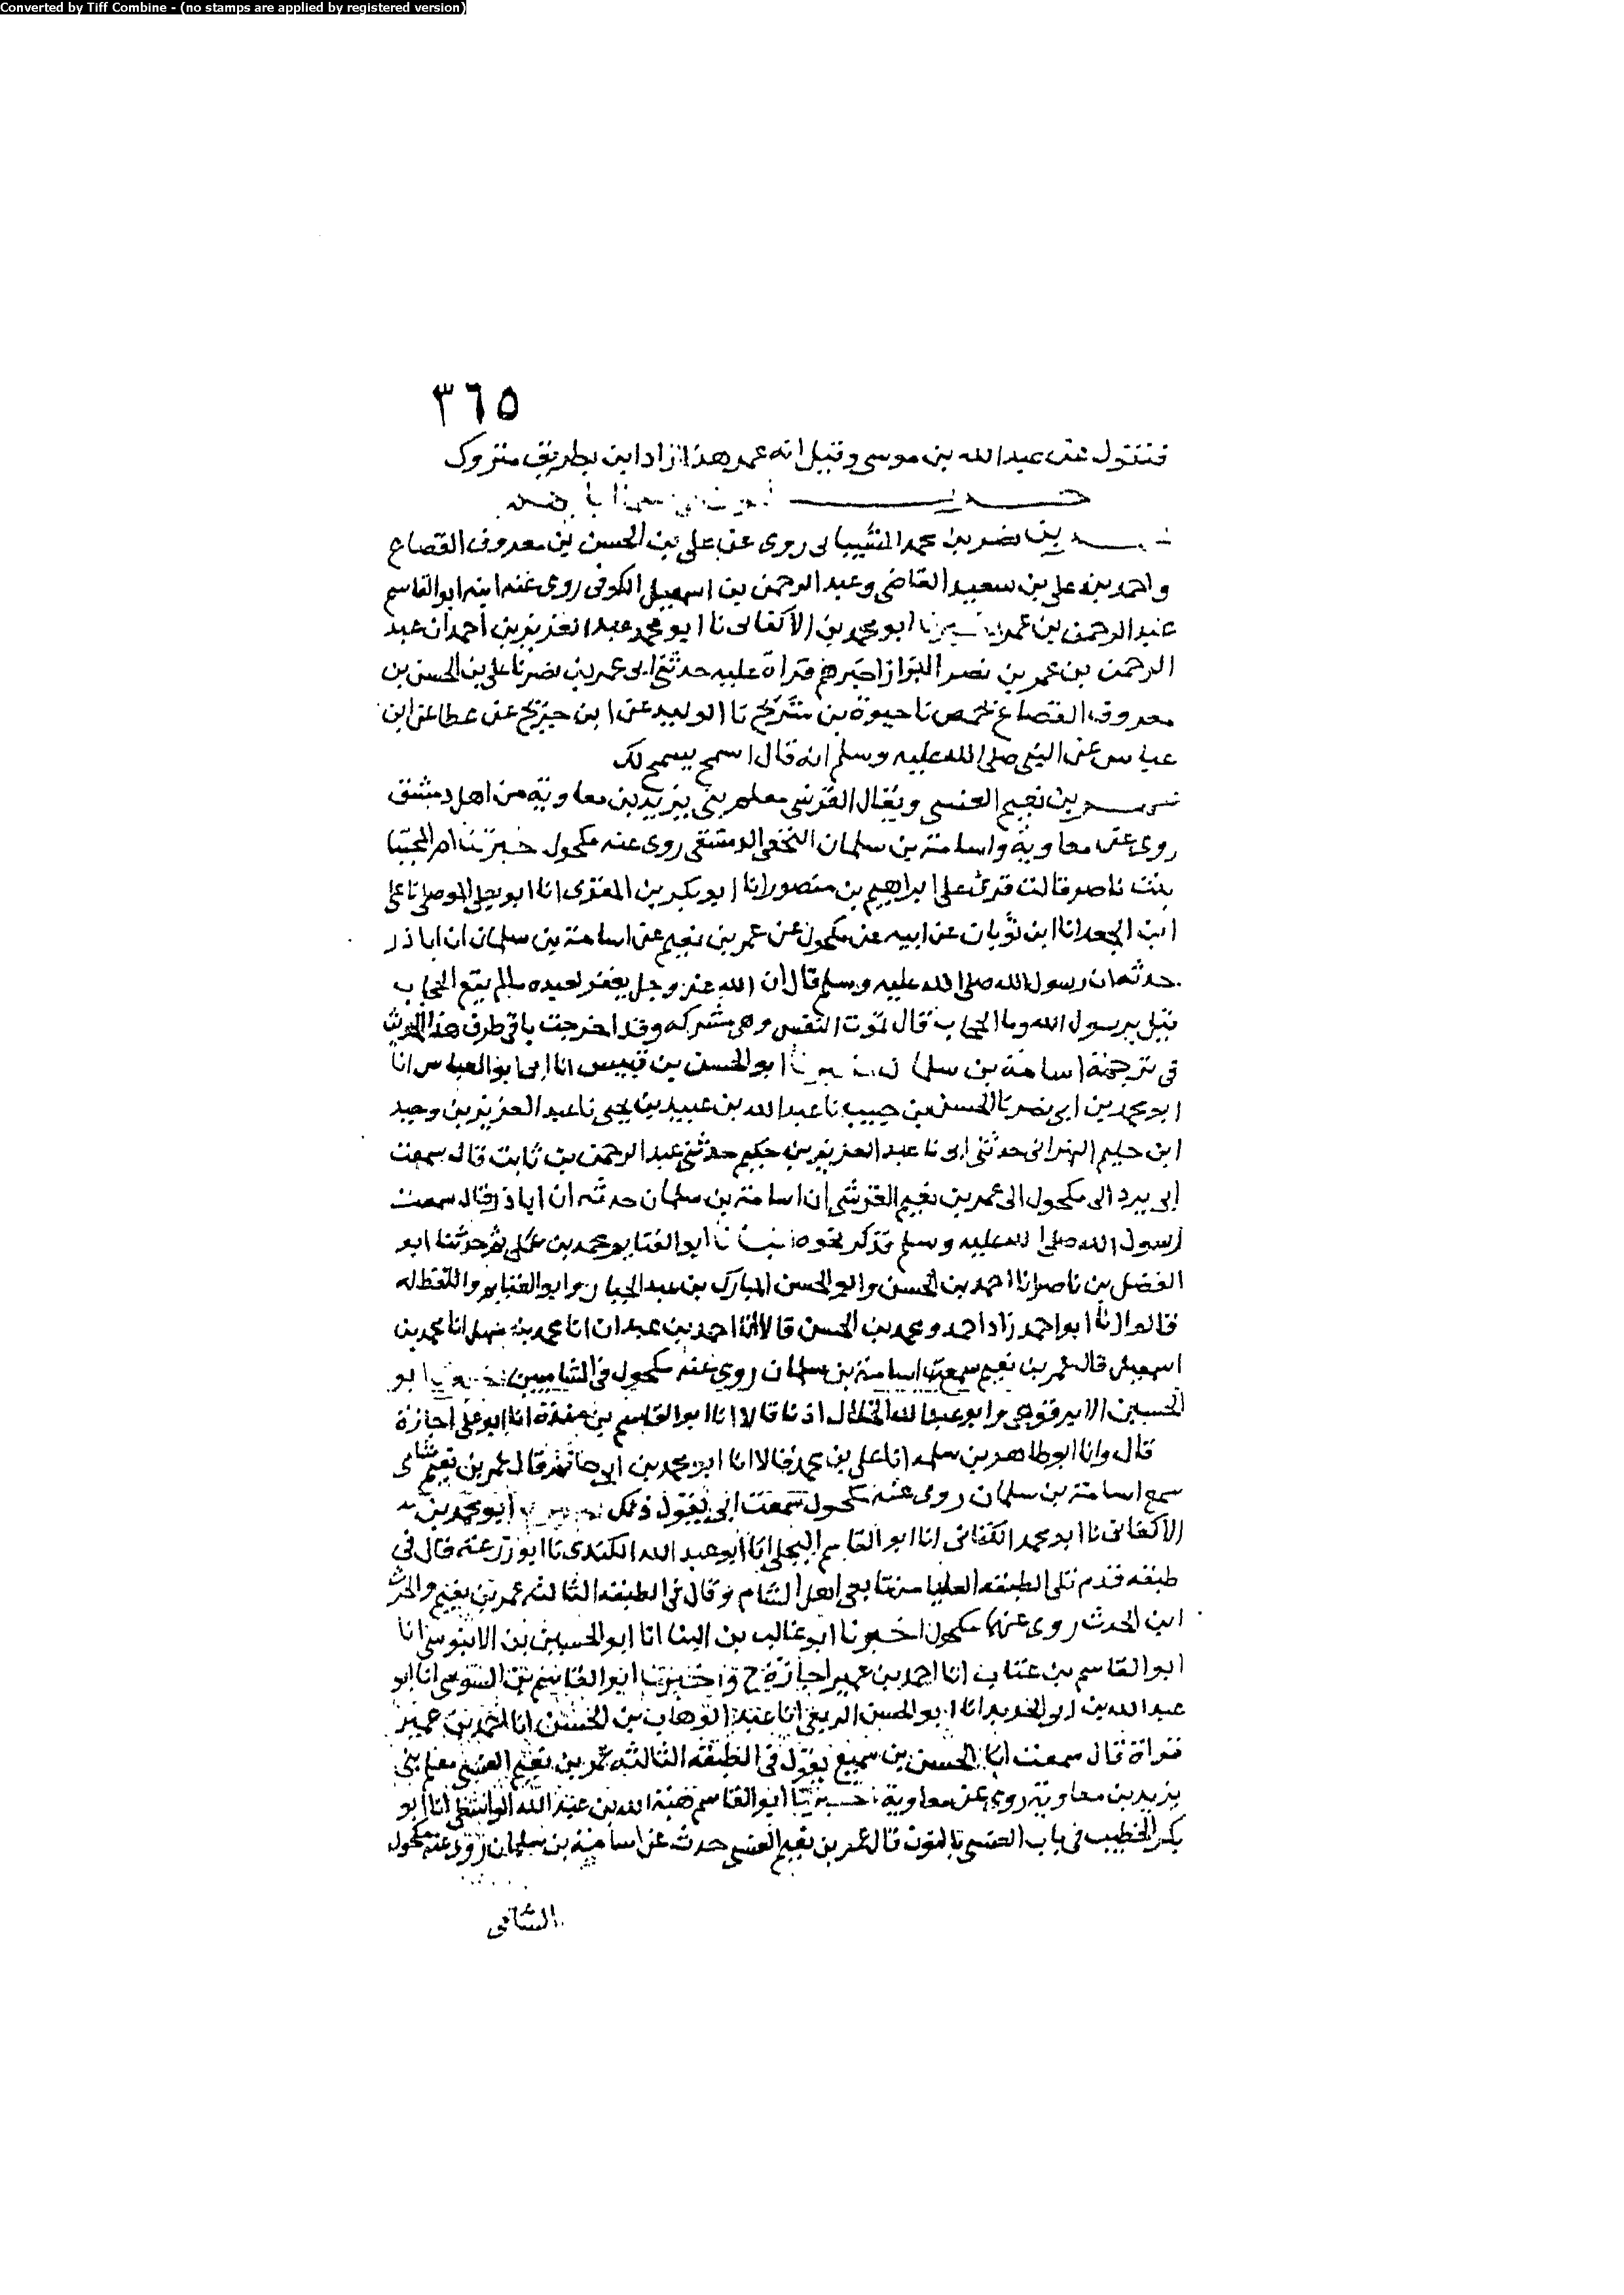 Converted by Tiff Combine - (no stamps are applied by registered version)
٣٦٥
عن عبد الله بن موسى وقيل انه عمر هذا زاد ابن بطريق متروك
بن نصر بن محمد الشيباني روى عن علي بن الحسن بن معروف القصاع
واحمد بن علي بن سعيد القاضي وعبد الرحمن بن اسمعيل الكوفي روى عنه ابنه ابو القاسم
عبد الرحمن بن عمر ابو محمد بن الاكفاني نا ابو محمد عبد العزيز بن أحمد ان عبد
الرحمن بن عمر بن نصر البزاز اخبرهم قراة عليه حدثني ابي عمر بن نصر نا علي بن الحسن بن
معروف القصاع بحمص نا حيوة بن شريح نا الوليد عن ابن جريج عن عطا عن ابن
عباس عن النبي صلى الله عليه وسلم انه قال اسمح يسمح لك
بن نعيم العنسي ويقال القرشي معلم بني يزيد بن معاوية من اهل دمشق
روى عن معاوية واسامة بن سلمان النخعي الدمشقي روى عنه مكحول خبرتنا ام المجتبا
بنت ناصر قالت قرئ على ابراهيم بن منصور انا ابو بكر بن المقرى انا ابو يعلى الموصلي نا علي
ابن الجعد انا ابن ثوبان عن ابيه عن مكحول عن عمر بن نعيم عن اسامة بن سلمان ان ابا ذر
حدثهم ان رسول الله صلى الله عليه وسلم قال ان الله عز وجل يغفر لعبده ما لم يقع الحجاب
قيل يرسول الله وما الحجاب قال تموت النفس وهي مشركه وقد اخرجت باقي طرق هذا الحديث
في ترجمة اسامة بن سلمان ابو الحسن بن قبيس انا ابي ابو العباس انا
ابو محمد بن ابي نصر نا الحسن بن حبيب نا عبد الله بن عبيد بن يحيى نا عبد العزيز بن وحيد
ابن حليم البهراني حدثني ابي نا عبد العزيز بن حكيم حدثني عبد الرحمن بن ثابت قال سمعت
ابي يرد الى مكحول الى عمر بن نعيم القرشي ان اسامة بن سلمان حدثه ان ابا ذر قال سمعت
رسول الله صلى الله عليه وسلم فذكر نحوه انبانا ابو الغنايم محمد بن علي ثم حدثنا ابو
الفضل بن ناصر انا احمد بن الحسن وابو الحسن المبارك بن عبد الجبار وابو الغنايم واللفظ له
قالوا انا ابو احمد زاد احمد ومحمد بن الحسن قالا انا احمد بن عبدان انا محمد بن سهل انا محمد بن
اسمعيل قال عمر بن نعيم سمع اسامة بن سلمان روى عنه مكحول في الشاميين ابو
الحسين الابرقوهي وابو عبد الله الخلال اذنا قالا انا ابو القاسم بن مندة انا ابو علي اجازة
قال وانا ابو طاهر بن سلمة انا علي بن محمد قالا انا ابو محمد بن ابي حاتم قال عمر بن نعيم شامى
سمع اسامة بن سلمان روى عنه مكحول سمعت ابي يقول ذلك ابو محمد بن
الاكفاني نا ابو محمد الكتاني انا ابو القاسم البجلي انا ابو عبد الله الكندي نا ابو زرعة قال في
طبقه قدم تلي الطبقه العليا من تابعي اهل الشام وقال في الطبقه الثالثه عمر بن نعيم والحرث
ابن الحرث روى عنهما مكحول اخبرنا ابو غالب بن البنا انا ابو الحسين بن الابنوسي انا
ابو القاسم بن عتاب انا احمد بن عمير اجازة ح واخبرنا ابو القاسم بن السوسي انا ابو
عبد الله بن ابي الحديد انا ابو الحسن الربعي انا عبد الوهاب بن الحسن انا احمد بن عمير
قراة قال سمعت ابا الحسن بن سميع يقول في الطبقه الثالثه عمر بن نعيم العنسي معلم بني
يزيد بن معاوية روى عن معاوية خبرنا ابو القاسم هبة الله بن عبد الله الواسطي انا ابو
بكر الخطيب في باب العنسي بالنون قال عمر بن نعيم العنسي حدث عن اسامة بن سلمان روى عنه مكحول
الشامى